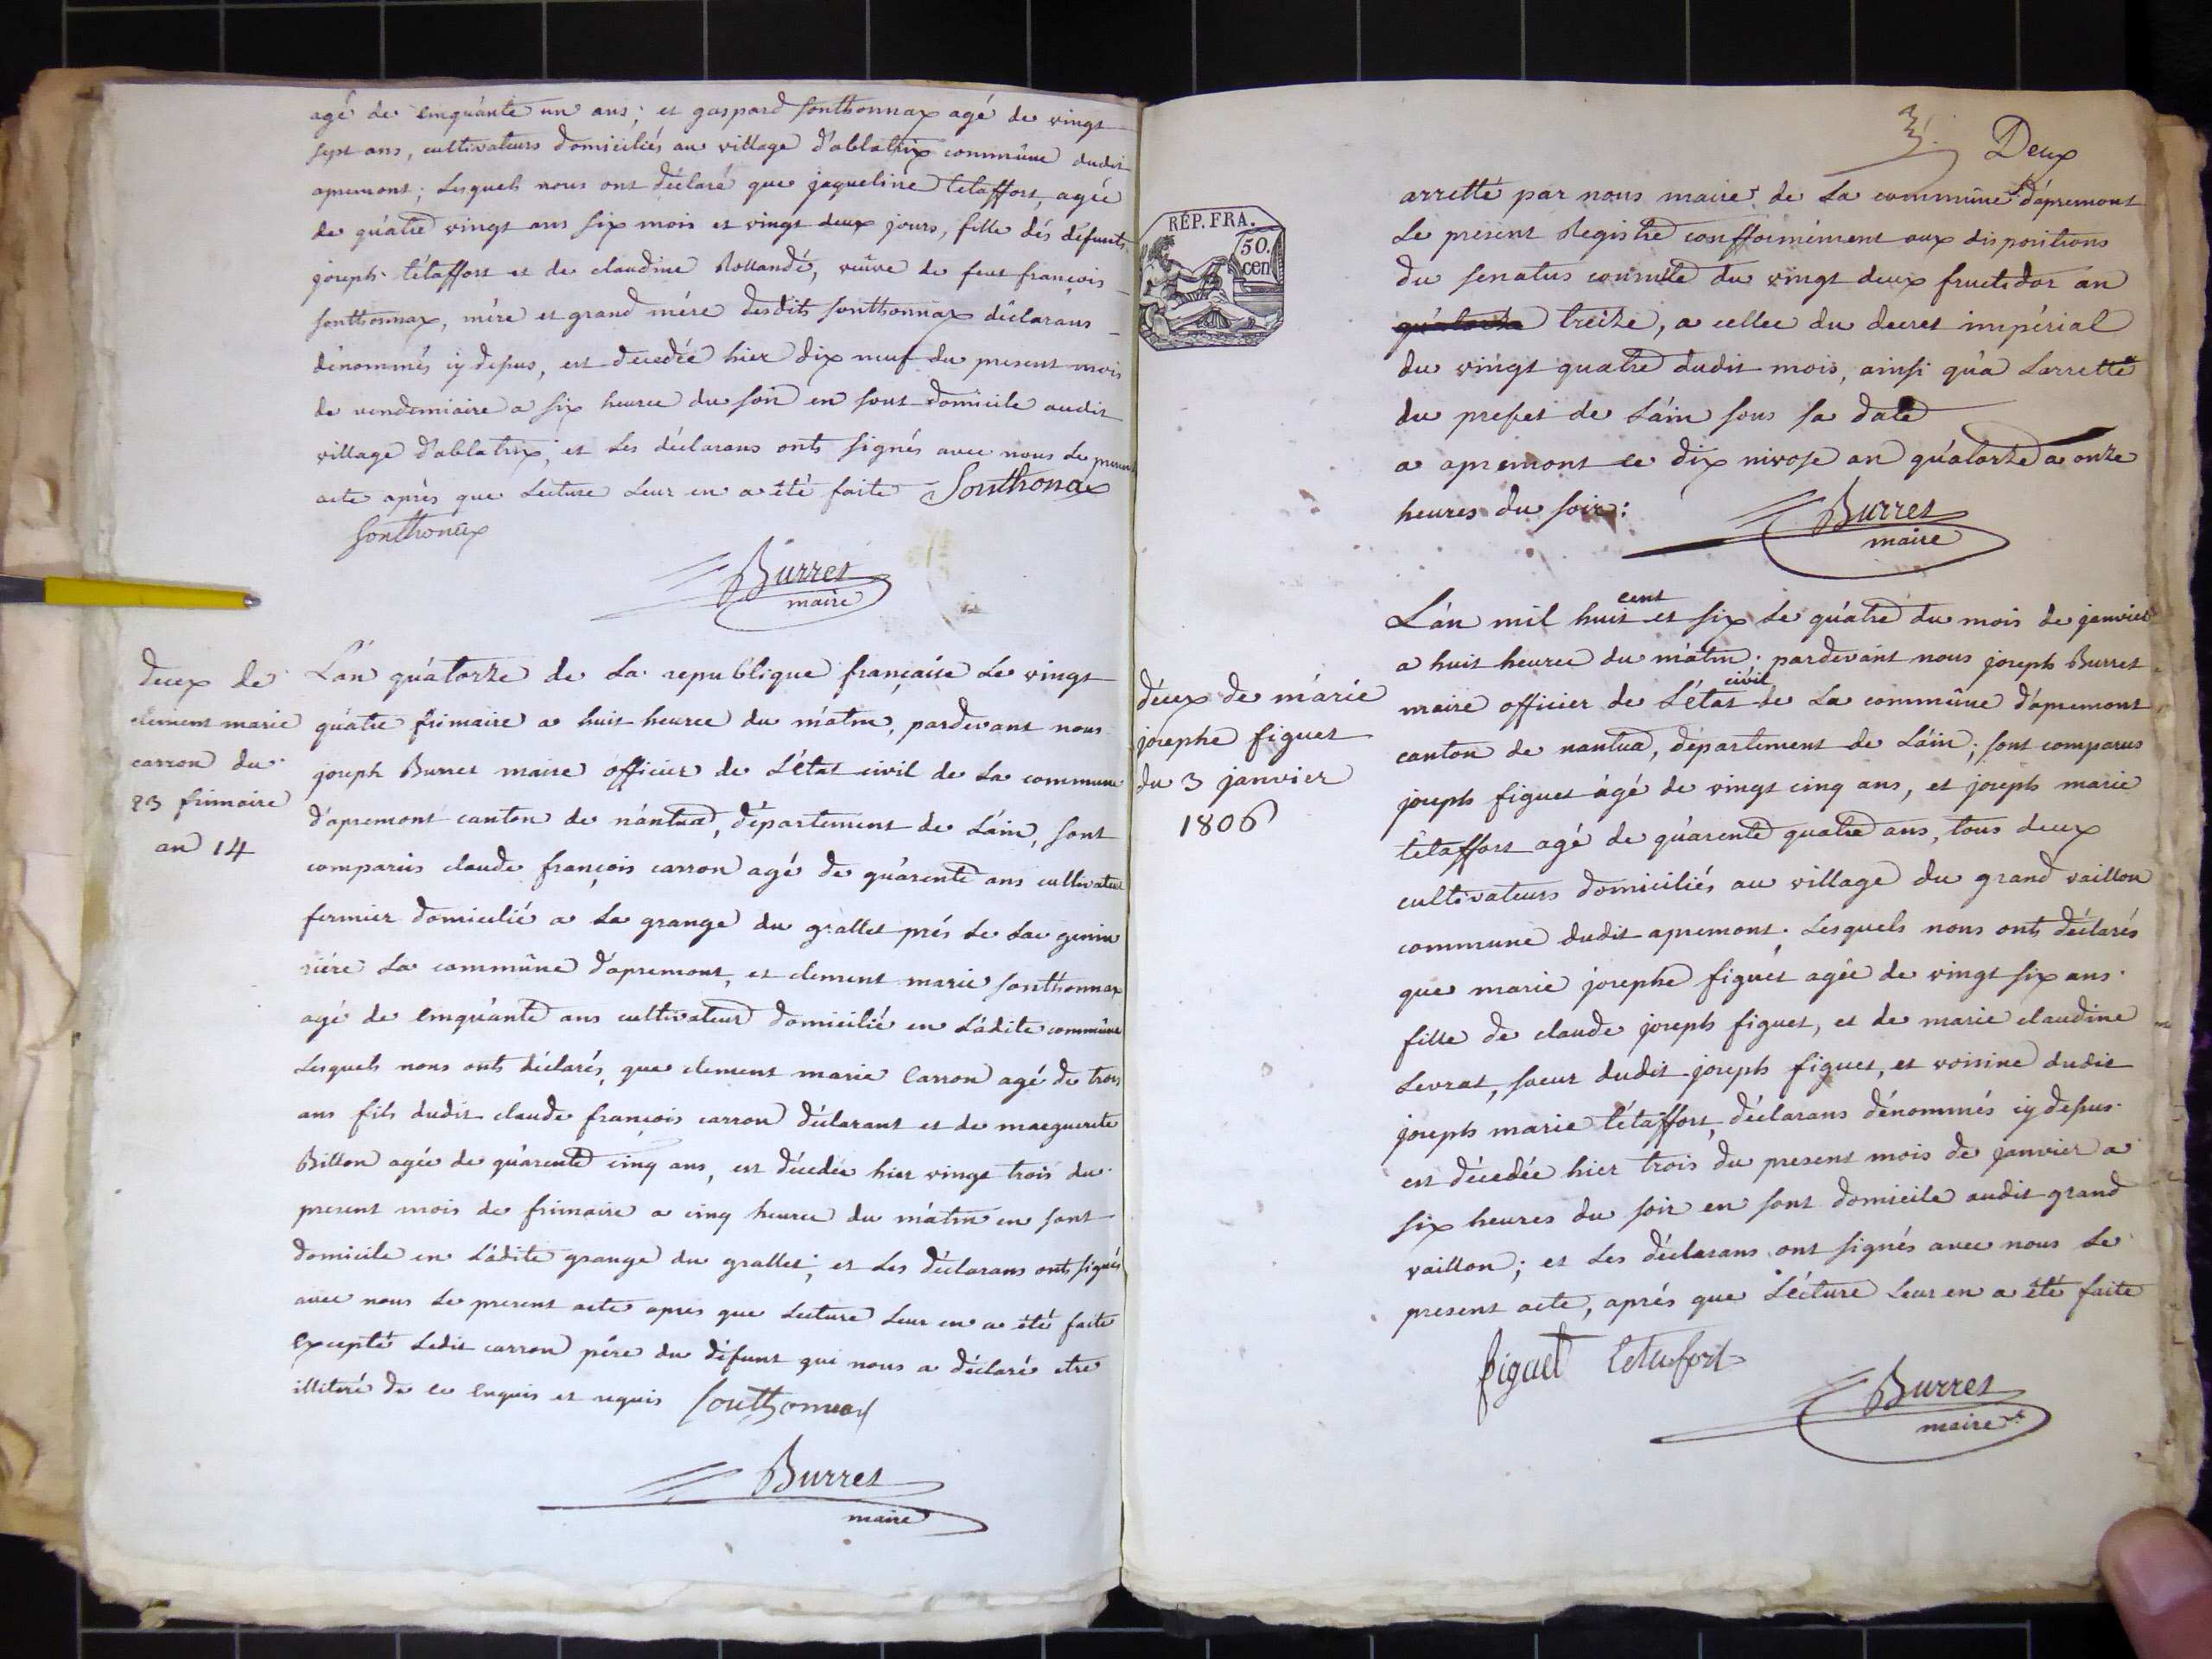 agé de cinquante un ans; et gaspard sonthonnax agé de vingt
sept ans, cultivateurs domiciliés au village d'ablatrix commûne dudit
apremont; Lesquels nous ont déclaré que jaqueline tétaffort, agée
de quátre vingt ans six mois et vingt deux jours, fille dés défunts
joseph tétaffort et de claudine Rollandé, veûve de feut françois
sonthonnax, mére et grand mére desdits sonthonnax déclarans
dénommés cy depus, est decedée hier dix neuf du present mois
de vendemiaire a six heures du soir en sont domicile audit
village d'ablatrix; et Les déclarans ont signés avec nous Le present
acte aprés que Lecture Leur en a été faite Sonthonax
Sonthonax
Burret
maire
deux de
clement marie
carron du
23 frimaire
an 14
L'an quátorze de La republique française Le vingt
quátre frimaire a huit heures du mátin, pardevant nous
joseph Burret maire officier de L'état civil de La commune
d'apremont canton de nántua, département de L'áin, sont
comparus claude françois carron agé de quárente ans cultivateur
fermier domicilié a La grange du grallet prés Le Lac genin
riére La commûne d'apremont, et clement marie sonthonnax
agé de cinquánte ans cultivateur domicilié en Ládite commûne
Lesquels nous ont déclarés, que clement marie Carron agé de trois
ans fils dudit claude françois carron déclarant et de marguerite
Billon agée de quárente cinq ans, est décedée hier vingt trois du
present mois de frimaire a cinq heures du mátin en sont
domicile en Ládite grange du grallet; et Les déclarans ont signés
avec nous Le present acte apres que Lecture Leur en a été faite
Excepté Ledit carron pére du défunt qui nous a déclaré etre
illiteré de ce Enquis et requis Sonthonnax
Burret
maire
Deux
RÉP. FRA.
50.
cen
arretté par nous maire de La commûne d'apremont
Le present Registre conformément aux dispositions
du senatus consulte du vingt deux fructidor an
quátorze treize, a celles du decret impérial
du vingt quatre dudit mois, ainsi qu'a Larretté
du prefet de L'áin sous sa date
a apremont ce dix nivose an quátorze a onze
heures du soir:
Burret
maire
deux de márie
josephe figuet
du 3 janvier
1806
L'án mil huit cent et six Le quátre du mois de janvier
a huit heures du mátin; pardevánt nous joseph Burret
maire officier de L'état civil de La commûne d'apremont
canton de nantua, département de L'áin; sont comparus
joseph figuet ágé de vingt cinq ans, et joseph marie
tétaffort agé de quárente quatre ans, tous deux
cultivateurs domiciliés au village du grand vaillon
commune dudit apremont; Lesquels nous ont déclarés
que marie josephe figuét agée de vingt six ans
fille de claude joseph figuet, et de marie claudine
Levrat, soeur dudit joseph figuet, et voisine dudit
joseph marie tétaffort, déclarans dénommés cy depus
est décedée hier trois du present mois de janvier a
six heures du soir en sont domicile audit grand
vaillon; et Les déclarans ont signés avec nous Le
present acte, aprés que Lécture Leur en a été faite
figuet tetafort
Burret
maire